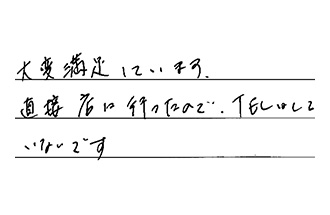 大変満足しています.
直接店に行ったので.TELはして
いないです